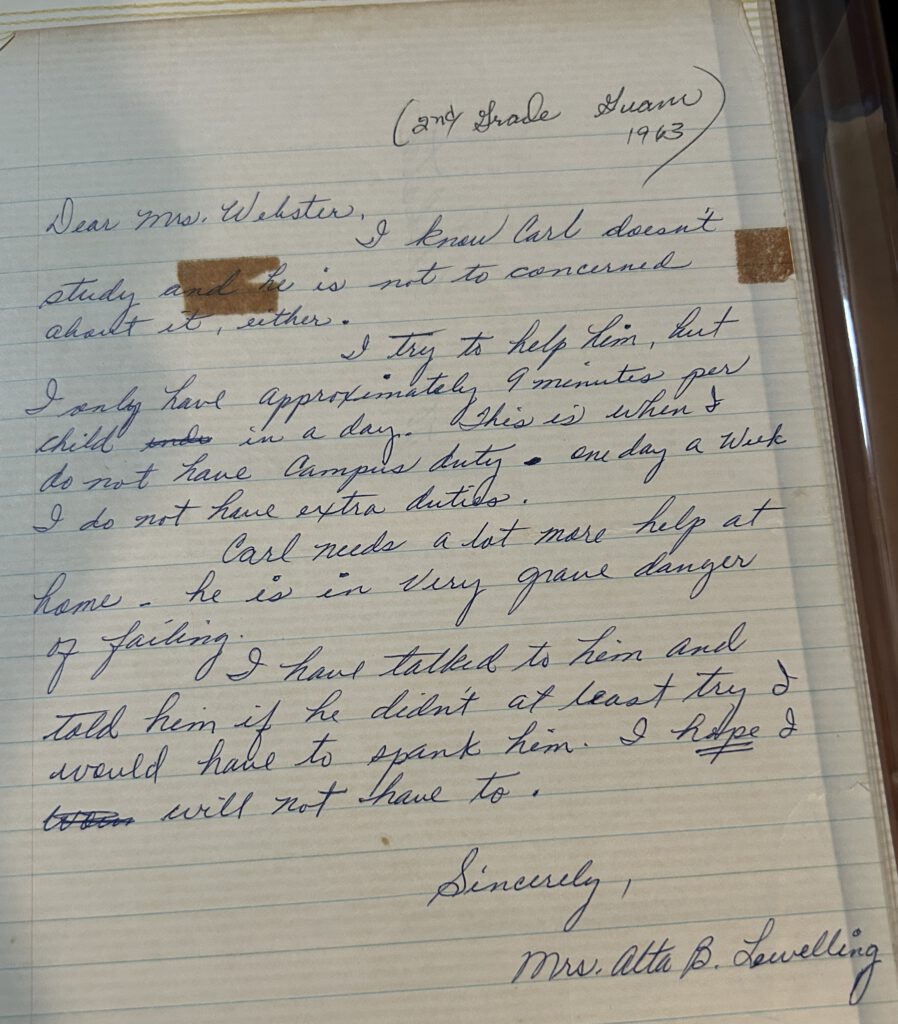 (2nd Grade Guam
1963)
Dear Mrs. Webster,
I know Carl doesn't
study and he is not to concerned
about it, either.
I try to help him, but
I only have approximately 9 minutes per
child in a day. This is when I
do not have Campus duty. one day a Week
I do not have extra duties.
Carl needs a lot more help at
home - he is in Very grave danger
of failing.
I have talked to him and
told him if he didn't at least try I
would have to spank him. I hope I
will not have to.
Sincerely,
Mrs. Alta B. Lewelling